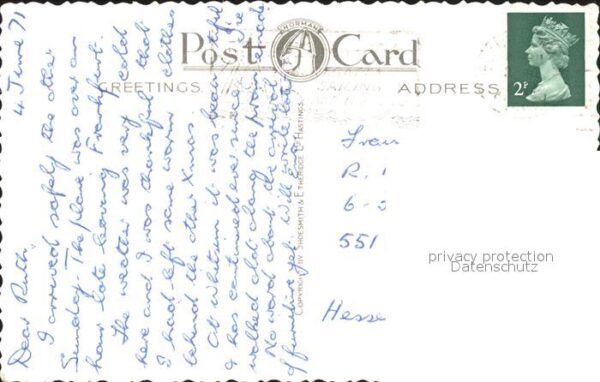 4 June 71
Dear Ruth,
I arrived safely the other
Sunday. The plane was over an
hour late leaving Frankfurt.
The weather was very cold
here and I was thankful that
I had left some warm clothes
behind the other Xmas.
At Whitsun it was beautiful
& has continued ever since. I've
walked a lot along the promenade.
No word about the arrival
of furniture yet. Will write later
NORMAN'S
Post Card
GREETINGS
ADDRESS
COPYRIGHT BY SHOESMITH & ETHERIDGE LTD HASTINGS.
2P
Frau
R.
6-2
551
Hesse
privacy protection
Datenschutz